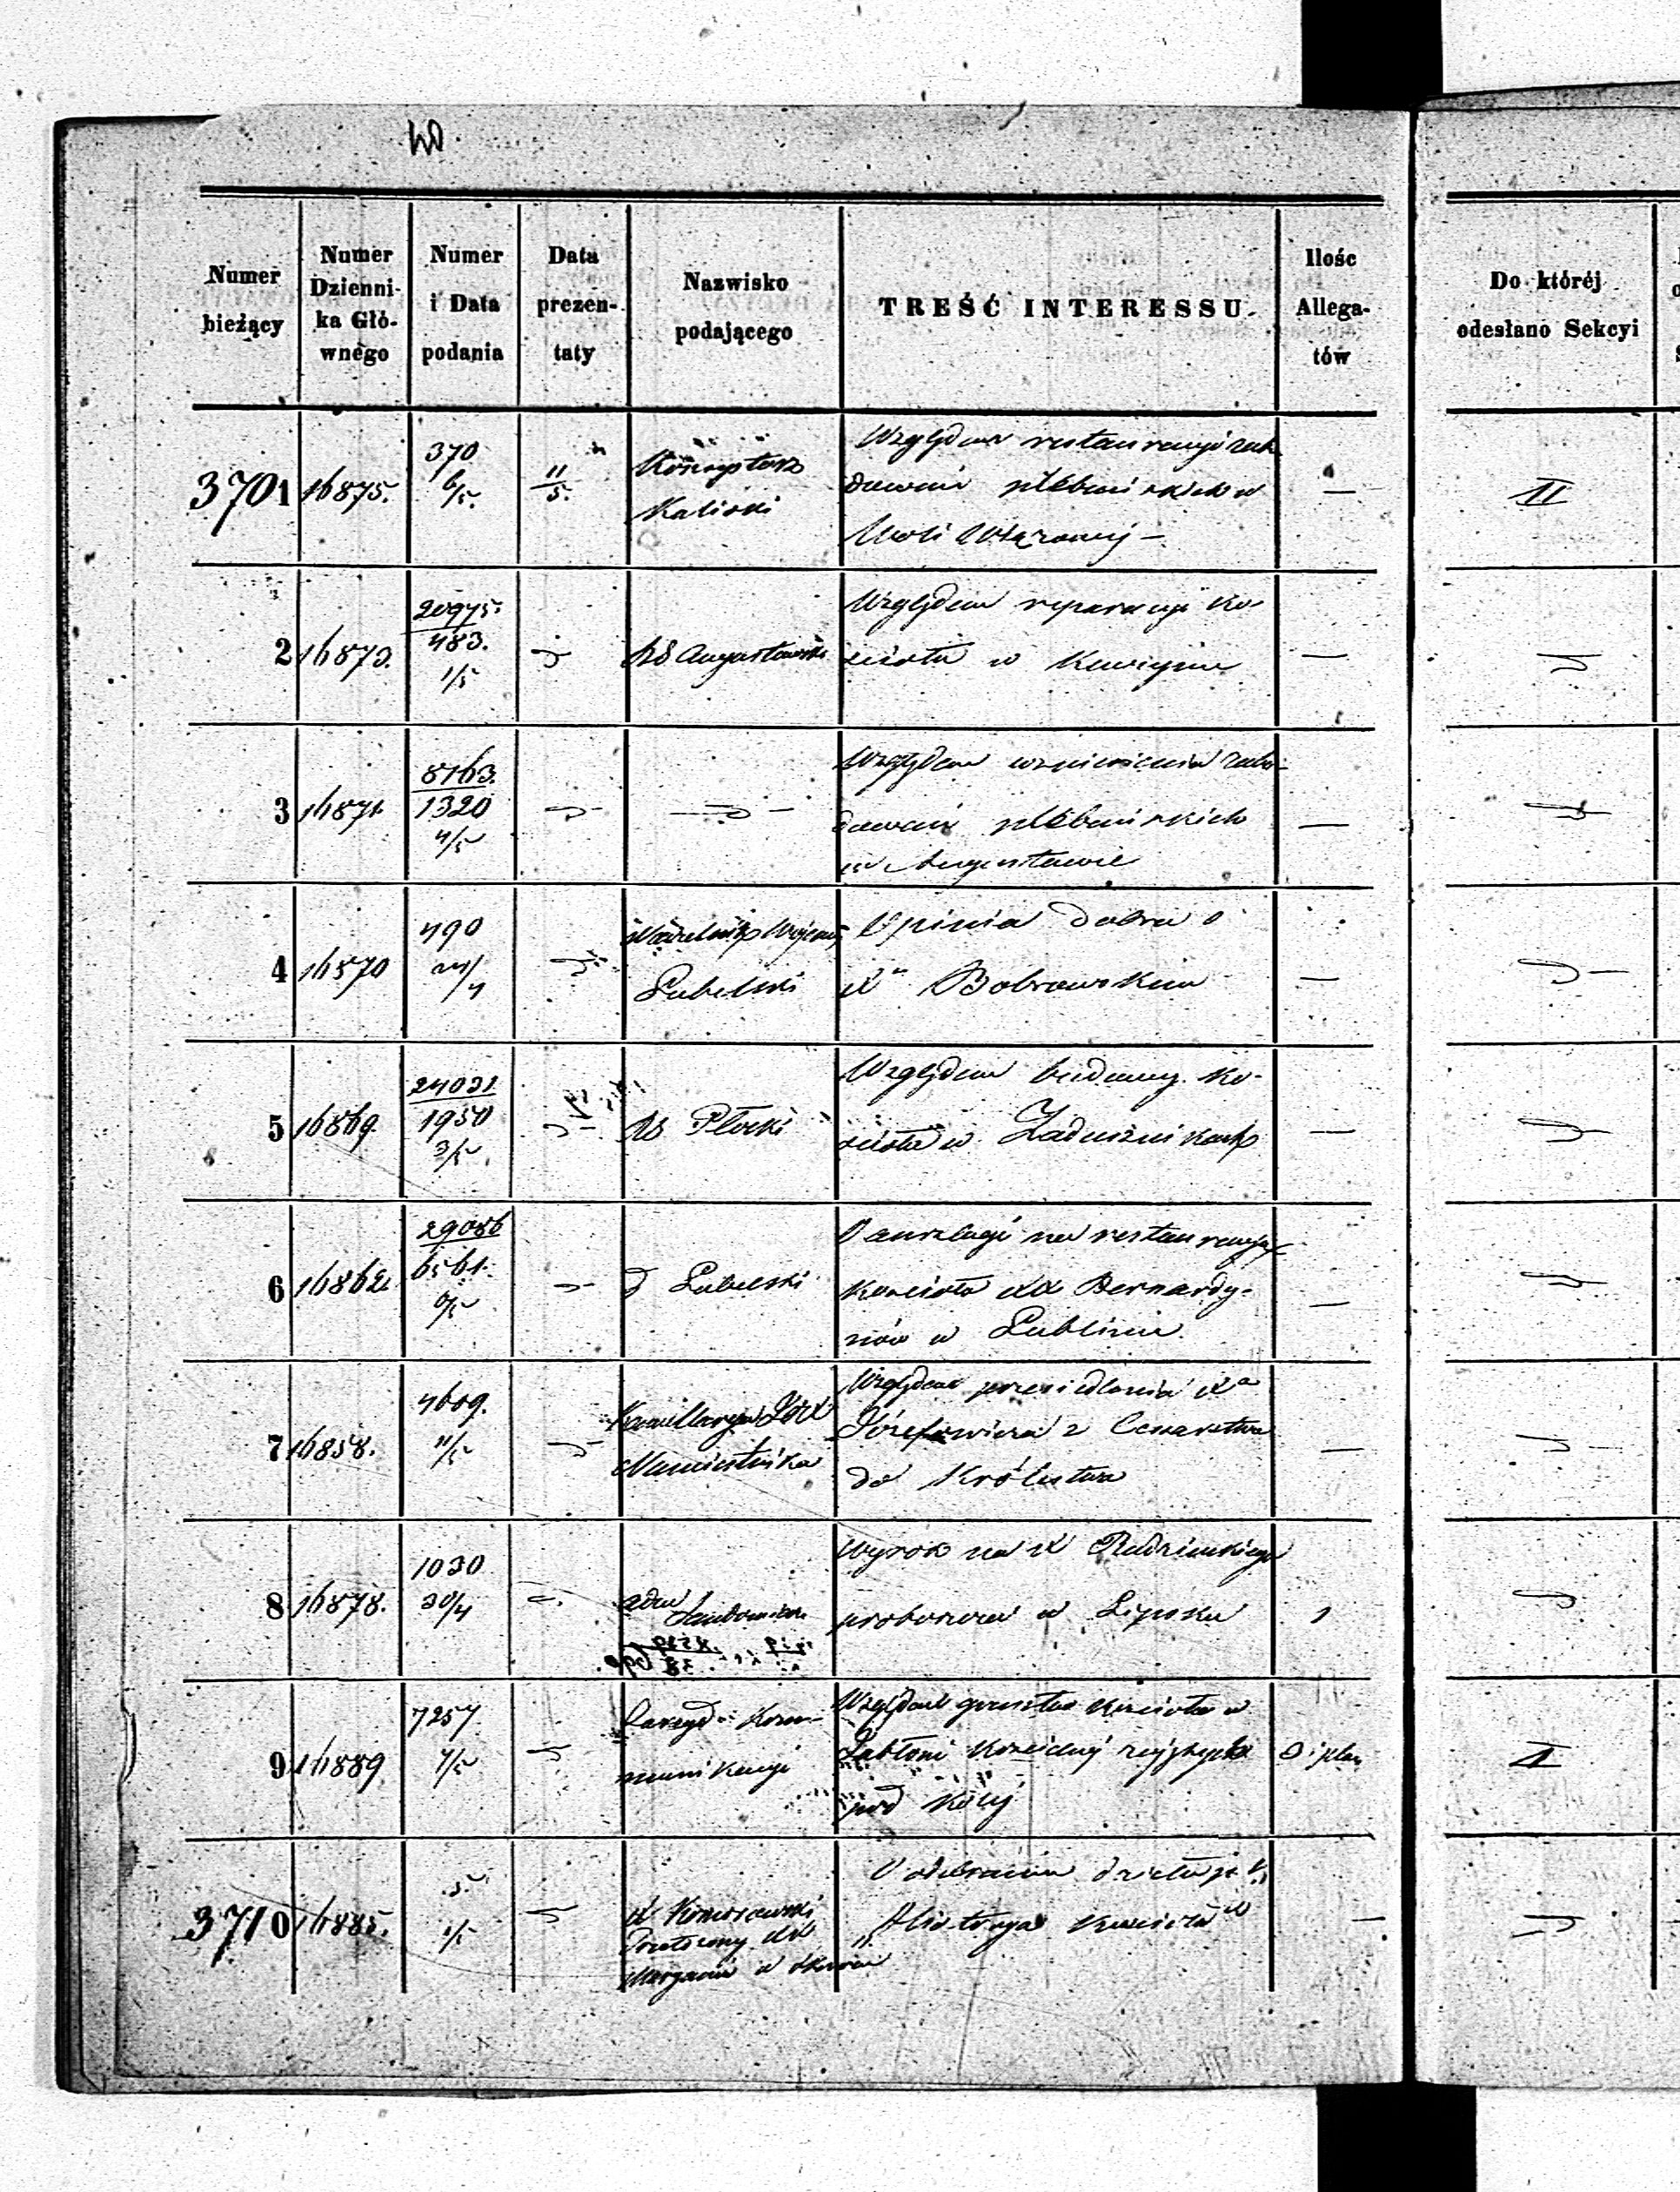 Numer bieżący
Numer Dzienni- ka Głó- wnego
Numer i Data podania
Data prezen- taty
Nazwisko podającego
TREŚĆ INTERESSU.
Ilośc Allega- tów
Do któréj odesłano Sekcyi
3701 16875. 370 6/5. 11/5. Konsystorz Kaliski
Względem restauracyi zabu-
dowań plebańskich w
Woli Wiązowej — — II
2 16873. 20975. 483. 1/5 RG Augustowski
Względem reparacyi ko-
ścioła w —
3 16871 8763. 1320 4/5
Względem wzniesienia zabu-
dowań plebańskich
w Augustowie —
4 16570 490 24/4 Naczelnik Wojenny
Lubelski
Opinia dobra o
Xu Bobrowskim —
5 16869. 24031 1950 3/5 RG Płocki
Względem budowy ko-
ścioła w Zadusznikach —
6 16862. 29086 6561. 9/5 d Lubelski
O anszlagi na restauracyę
kościoła XX Bernardy-
nów w Lublinie. —
7 16858. 4609. 11/5 Kancellarya JOX
Namiestnika
Względem przesiedlenia Xa
Józefowicza z Cesarstwa
do Królestwa —
8 16878. 1030 30/4
Wyrok na X
proboszcza w Lipsku 1
9 16889 7257 4/5 Zarząd Kom-
munikacyi
Względem gruntów kościoła w
Jabłoni Kościelnej zajętych
pod kolej II
3710 16885. 1/5 X
Przełożony XX
Maryanów w
O odebraniu dzieła p. t.
"Historya Kościoła"
—